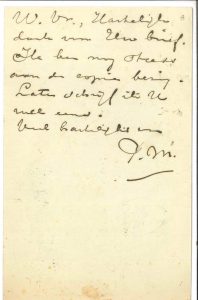 W. Vr., Hartelijk
dank voor Uw brief.
Ik ben nog steeds
aan de copie bezig.
Later schrijf ik U
wel eens.
Veel hartelijks van
P.M.